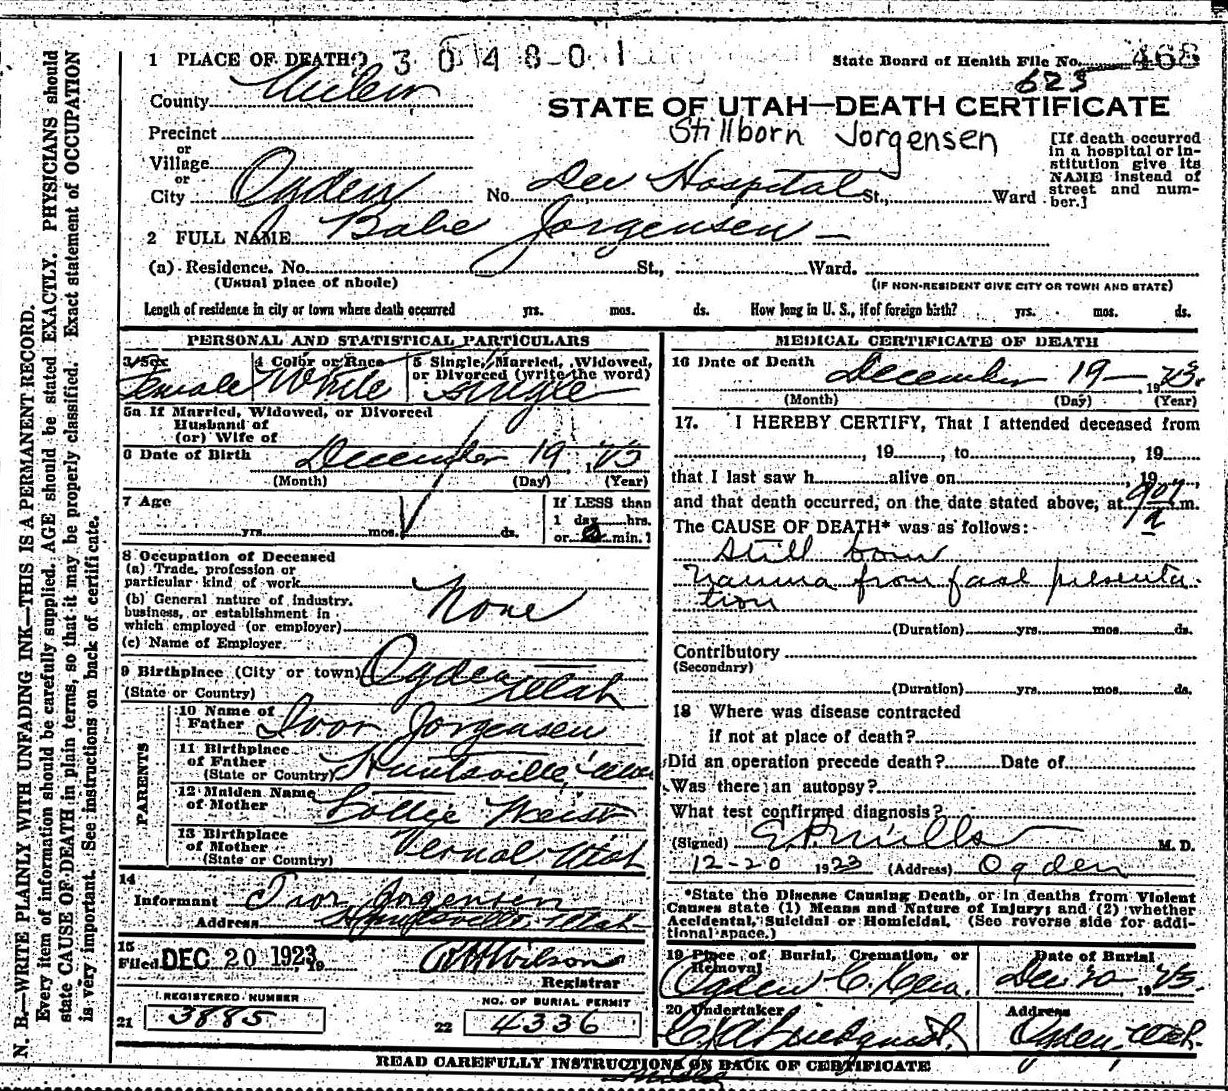 N. B.—WRITE PLAINLY WITH UNFADING INK—THIS IS A PERMANENT RECORD.
Every item of information should be carefully supplied. AGE should be stated EXACTLY. PHYSICIANS should
state CAUSE OF DEATH in plain terms, so that it may be properly classified. Exact statement of OCCUPATION
is very important. See instructions on back of certificate.
1 PLACE OF DEATH 304801
State Board of Health File No. 468
623
County
STATE OF UTAH—DEATH CERTIFICATE
Stillborn Jorgensen
Precinct
or
Village
or
City Ogden No. Dee Hospital St., Ward
[If death occurred
in a hospital or in-
stitution give its
NAME instead of
street and num-
ber.]
2 FULL NAME Babe Jorgensen —
(a) Residence. No. St., Ward.
(Usual place of abode) (IF NON-RESIDENT GIVE CITY OR TOWN AND STATE)
Length of residence in city or town where death occurred yrs. mos. ds. How long in U. S., if of foreign birth? yrs. mos. ds.
PERSONAL AND STATISTICAL PARTICULARS
3 Sex Female
4 Color or Race White
5 Single, Married, Widowed,
or Divorced (write the word)
Single
5a If Married, Widowed, or Divorced
Husband of
(or) Wife of
6 Date of Birth December 19 1923
(Month) (Day) (Year)
7 Age
yrs. mos. ds.
If LESS than
1 day hrs.
or min.
8 Occupation of Deceased
(a) Trade, profession or
particular kind of work
(b) General nature of industry,
business, or establishment in
which employed (or employer)
None
(c) Name of Employer
9 Birthplace (City or town) Ogden
(State or Country) Utah
PARENTS
10 Name of
Father Ivor Jorgensen
11 Birthplace
of Father
(State or Country) Huntsville, Utah
12 Maiden Name
of Mother Lollie
13 Birthplace
of Mother
(State or Country) Vernal Utah
14
Informant Ivor Jorgensen
Address Huntsville Utah
15
Filed DEC 20 1923, 19 Wilson
Registrar
REGISTERED NUMBER
21 3885
NO. OF BURIAL PERMIT
22 4336
MEDICAL CERTIFICATE OF DEATH
16 Date of Death
December 19 — 1923.
(Month) (Day) (Year)
17. I HEREBY CERTIFY, That I attended deceased from
, 19 , to , 19
that I last saw h alive on , 19
and that death occurred, on the date stated above, at 907 a m.
The CAUSE OF DEATH* was as follows:
Still born
Trauma from presenta-
tion
(Duration) yrs. mos. ds.
Contributory
(Secondary)
(Duration) yrs. mos. ds.
18 Where was disease contracted
if not at place of death?
Did an operation precede death? Date of
Was there an autopsy?
What test confirmed diagnosis?
(Signed) Mills M.D.
12-20 1923 (Address) Ogden
*State the Disease Causing Death, or in deaths from Violent
Causes state (1) Means and Nature of Injury; and (2) whether
Accidental, Suicidal or Homicidal. (See reverse side for addi-
tional space.)
19 Place of Burial, Cremation, or
Removal
Ogden
Date of Burial
Dec 20 1923.
20 Undertaker
Lindquist
Address
Ogden, Utah.
READ CAREFULLY INSTRUCTIONS ON BACK OF CERTIFICATE